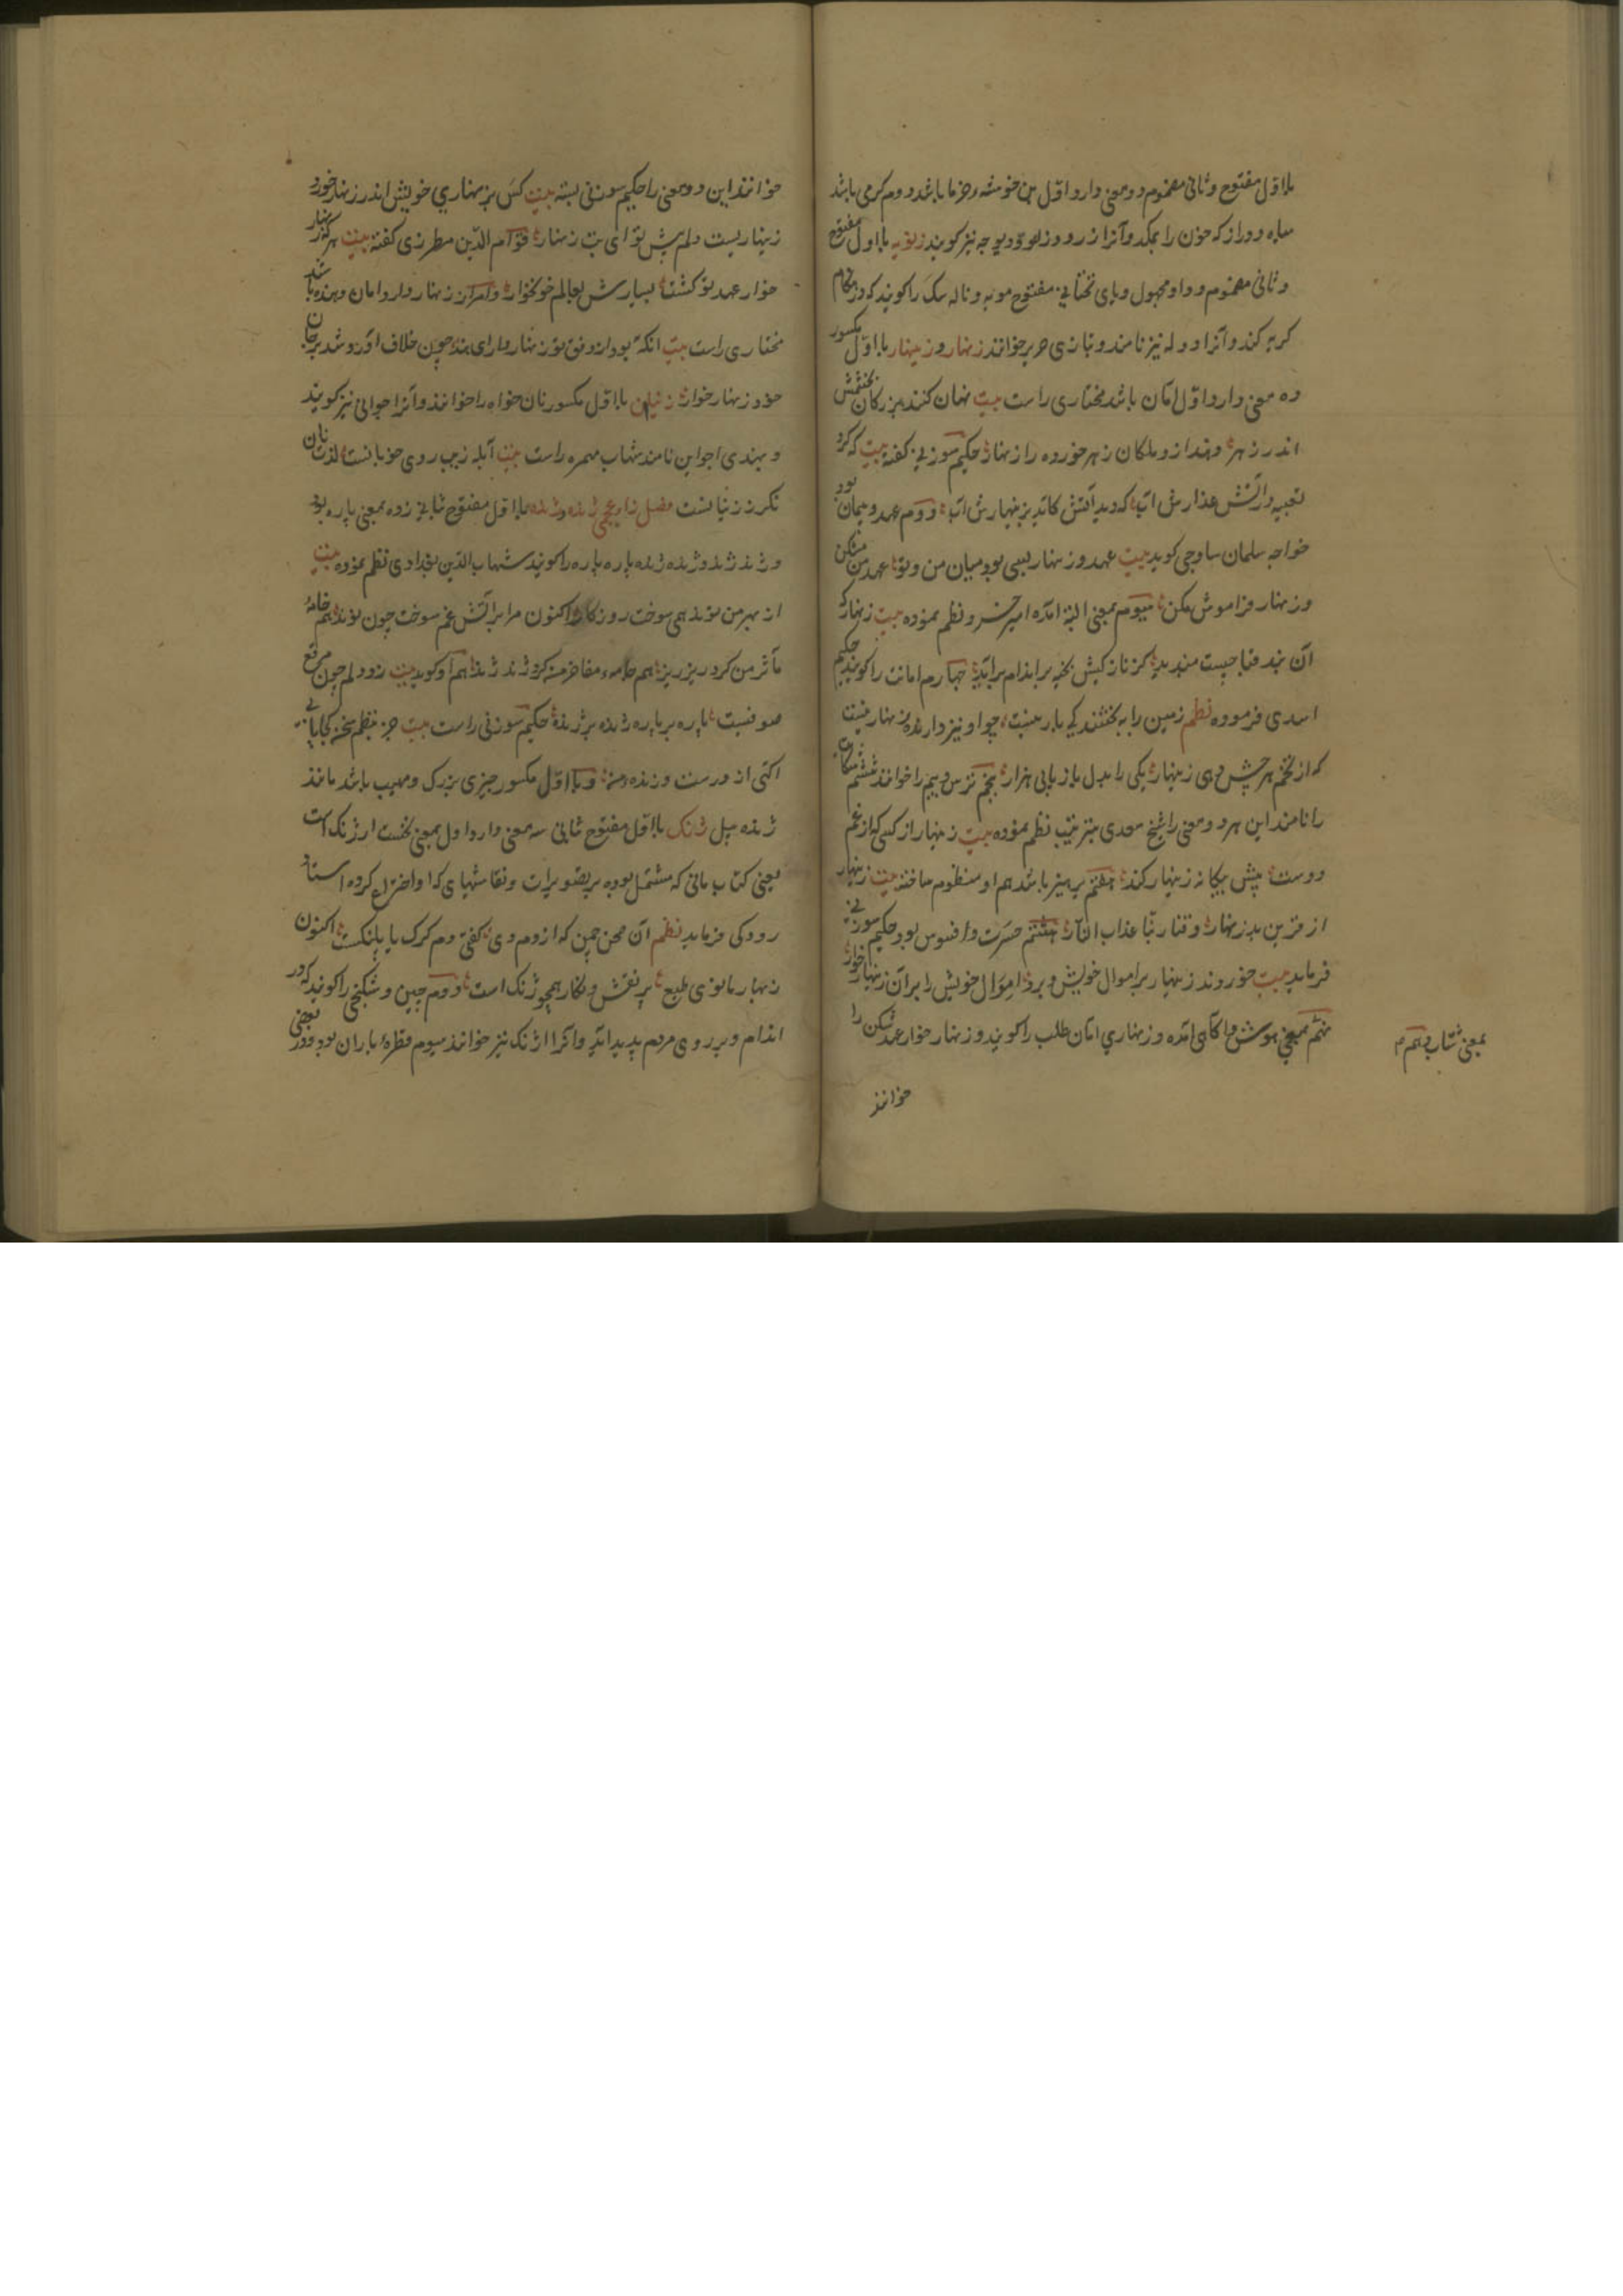 بااول مفتوح و ثانی مضموم دو معنی دارد اول بن خوشه خرما باشد دوم کرمی باشد
سیاه و دراز که خون را بمکد و آنرا زرو و زلو و دیوجه نیز کویند زنویه بااول مفتوح
و ثانی مضموم و واو مجهول و یای تحتانی مفتوح مویه و ناله سک را کویند که در هنکام
کریه کند و آنرا نیز نامند و بتازی هریر خوانند زنهار و زینهار بااول مکسور
ده معنی دارد اول امان باشد مختاری راست بیت نهان کنند بزرکان
اندر زهر دهند از و ملکان زهر خورده را زنهار حکیم سوزنی کفته بیت که کرد
تعبیه در آتش عذارش آب که دید آتش کاید بزینهارش آب دوم عهد و پیمان بود
خواجه سلمان ساوجی کوید بیت عهد و زنهار بسی بود میان من و تو عهد من مشکن
و زنهار فراموش مکن سیوم بمعنی البته آمده امیر خسرو نظم نموده بیت زنهار که
آن بند قبا چست مبندید کز نازکیش بخیه بر اندام برآید چهارم امانت را کویند حکیم
اسدی فرموده نظم زمین را ببخشند کی یار نیست چو او نیز دارنده زنهار نیست
که از تخم هر چش دهی زینهار یکی را بدل باز یابی هزار پنجم ترس و بیم را خوانند ششم شکایت
را نامند این هر دو معنی را شیخ سعدی بترتیب نظم نموده بیت زینهار از کسی که از غم
دوست پیش بیکانه زینهار کند هفتم پرهیز باشد هم او منظوم ساخته بیت زینهار
از قرین بد زنهار وقنا ربنا عذاب النار هشتم حسرت و افسوس بود حکیم سوزنی
فرماید بیت خوردند زینهار بر اموال خویش و برد اموال خویش را بر آن زینهار خوار
نهم بمعنی هوش و آکاهی آمده و زنهاری امان طلب را کویند و زنهار خوار عهد شکن را
بمعنی شتاب دهم
خوانند
خوانند این دو معنی را حکیم سوزنی بسته بیت کس بزنهاری خویش اندر زنهار خورد
زینهاریست دلم پیش تو ای بت زنهار قوام الدین مطرزی کفته بیت هرکه زنهار
خوار عهد تو کشت بسپارش بعالم خونخوار و زنهاردار امان دهنده باشد
مختاری راست بیت انکه بود از وفق تو زنهاردار ای بنده چون خلاف آورد شد بر جان
خود زنهار خوار زنیان بااول مکسور نان خواه را خوانند و آنرا جوانی نیز کویند
و بهندی اجواین نامند شهاب مهمره راست بیت آبله زیب روی خوبانست لذت نان
نکر ز زنیانست فصل زا عجمی ژنده و ژنده بااول مفتوح ثانی زده بمعنی پاره بود
و ژند ژند و ژنده ژنده پاره پاره را کویند شهاب الدین بغدادی نظم نموده بیت
از بهر من نوند همی سوخت روزکار اکنون مرا بر آتش غم سوخت چون نوند هم خامهٔ
مآثر من کرد ریز ریز هم جامهٔ مفاخر من کرد ژند ژند هم او کوید بیت زو دلم چون مرقع
صوفیست پاره بر پاره ژنده بر ژنده حکیم سوزنی راست بیت جز بنظم سخن کجا یابی
اکتی از درست و ژنده من و بااول مکسور چیزی بزرک و مهیب باشد مانند
ژنده پیل ژنک بااول مفتوح ثانی سه معنی دارد اول بمعنی نخست ارژنک است
یعنی کتاب مانی که مشتمل بوده بر تصویرات و نقاشیهای که او اختراع کرده استاد
رودکی فرماید نظم آن صحن چمن که از دم دی کفتی دم کرک یا پلنکست اکنون
ز بهار مانوی طبع پر نقش و نکار همچو ژنک است دوم چین و شکنجی را کویند که در
اندام و بر روی مردم پدید آید و آنرا اژنک نیز خوانند سیوم قطره باران بود و در بعضی